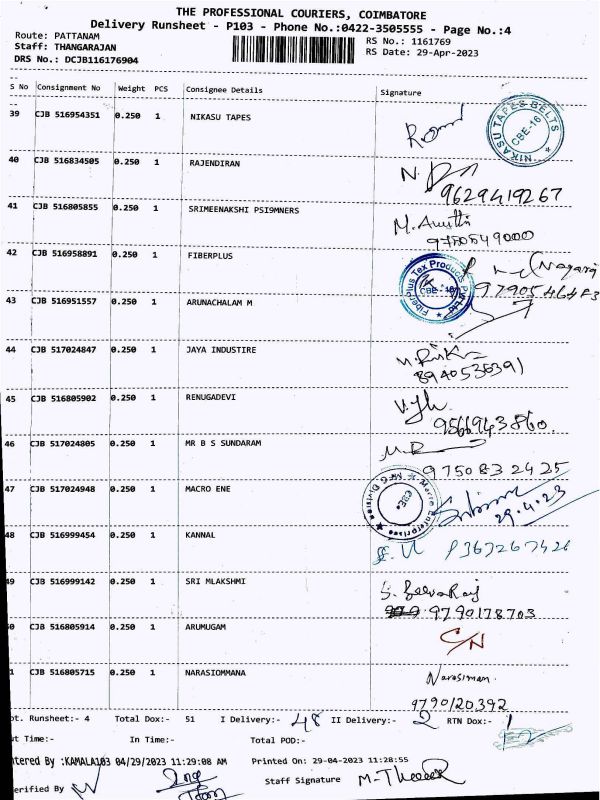 THE PROFESSIONAL COURIERS, COIMBATORE
Delivery Runsheet - P103 - Phone No.:0422-3505555 - Page No.:4
Route: PATTANAM
RS No.: 1161769
Staff: THANGARAJAN
RS Date: 29-Apr-2023
DRS No.: DCJB116176904
S No Consignment No Weight PCS Consignee Details Signature
39 CJB 516954351 0.250 1 NIKASU TAPES
NIKASU TAPES BELTS CBE-16
40 CJB 516834505 0.250 1 RAJENDIRAN
9629419267
41 CJB 516805855 0.250 1 SRIMEENAKSHI PSI9MNERS
9750549000
42 CJB 516958891 0.250 1 FIBERPLUS
Fiberplus Tex Products Pvt Ltd
(Nagaraj
43 CJB 516951557 0.250 1 ARUNACHALAM M
44 CJB 517024847 0.250 1 JAYA INDUSTIRE
8940536391
45 CJB 516805902 0.250 1 RENUGADEVI
9566943860.
46 CJB 517024805 0.250 1 MR B S SUNDARAM
975083 2425
47 CJB 517024948 0.250 1 MACRO ENE
CBE
29.4.23
48 CJB 516999454 0.250 1 KANNAL
49 CJB 516999142 0.250 1 SRI MLAKSHMI
9790178703
0 CJB 516805914 0.250 1 ARUMUGAM
C/N
1 CJB 516805715 0.250 1 NARASIOMMANA
Narasiman
9790120392
ot. Runsheet:- 4 Total Dox:- 51 I Delivery:- 48 II Delivery:- 2 RTN Dox:- 1
ut Time:- In Time:- Total POD:-
ntered By :KAMALA103 04/29/2023 11:29:08 AM Printed On: 29-04-2023 11:28:55
erified By Staff Signature